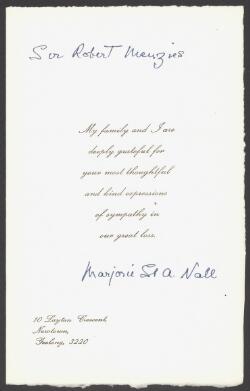 Sir Robert Menzies
My family and I are
deeply grateful for
your most thoughtful
and kind expressions
of sympathy in
our great loss.
Marjorie St A. Nall
10 Layton Crescent,
Newtown,
Geelong, 3220